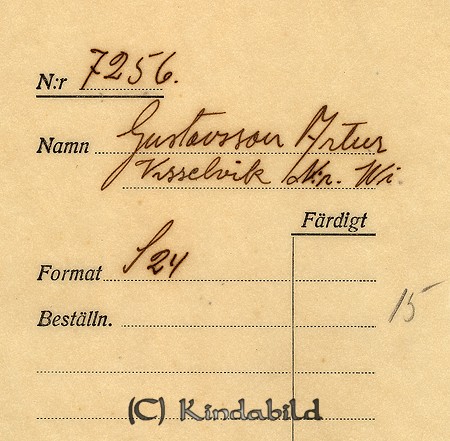 N:r 7256.
Namn Gustavsson Artur
Kisselvik N:r. Wi
Färdigt
Format S 24
15
Beställn.
(C) Kindabild